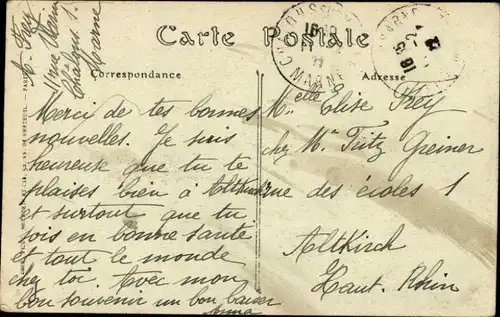 Carte Postale
Correspondance
Adresse
A. Frey
11 rue
Châlons s.
Marne
Merci de tes bonnes
nouvelles. Je suis
heureuse que tu te
plaises bien à Altkirch
et surtout que tu
sois en bonne santé
et tout le monde
chez toi. Avec mon
bon souvenir un bon baiser
Anna
Melle Elise Frey
chez Mr Fritz Greiner
rue des écoles 1
Altkirch
Haut-Rhin
MARNE
MARNE